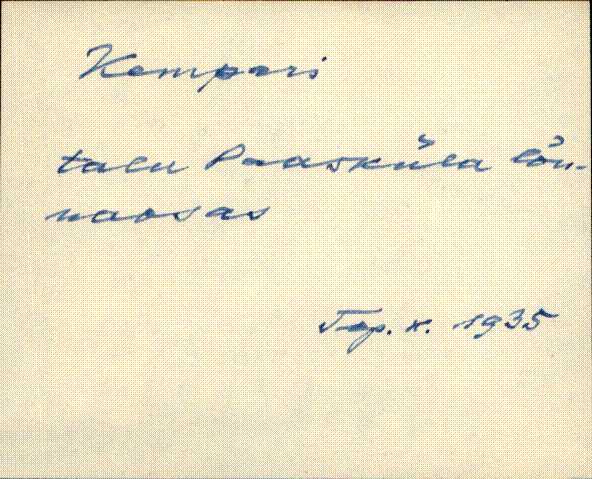 Kempari
talu Paasküla lõu-
naosas
Top. k. 1935